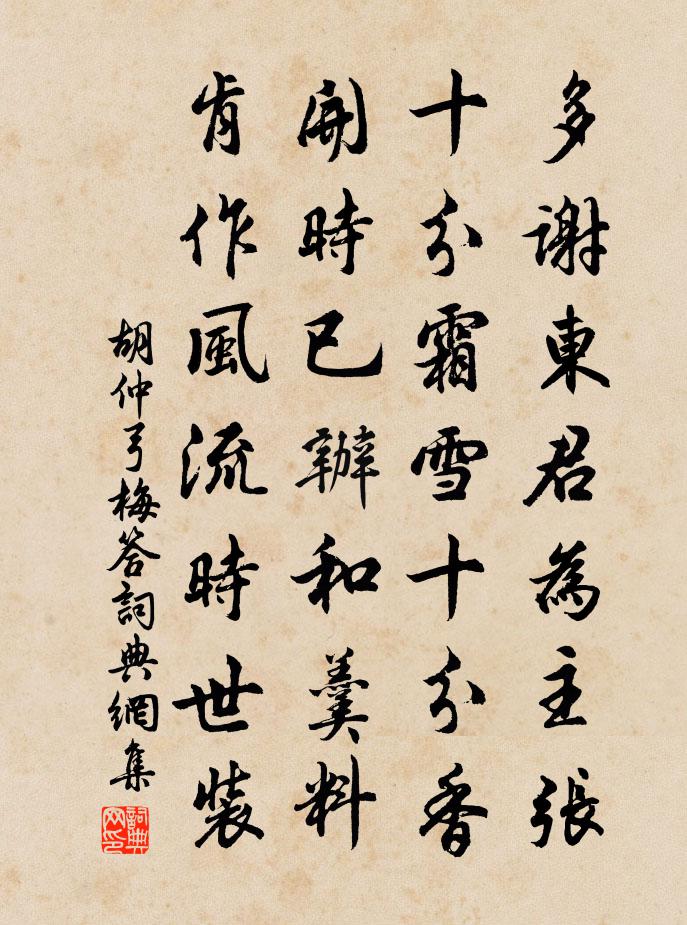 多謝東君為主張
十分霜雪十分香
開時已辦和羹料
肯作風流時世裝
胡仲弓梅答詞典網集
詞典網印